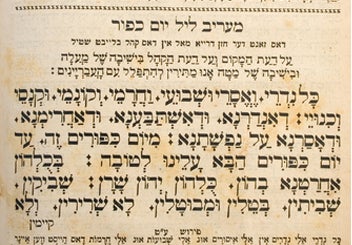 מעריב ליל יום כפור
דאס זאגט דער חזן דרייא מאל אין דאס קהל בלייבט שטיל
על דעת המקום ועל דעת הקהל בישיבה של מעלה
ובישיבה של מטה אנו מתירין להתפלל עם העבריינים:
כל נדרי. ואסרי ושבועי. וחרמי. וקונמי. וקנסי
וכנויי: דאנדרנא. ודאשתבענא. ודאחרימנא.
ודאסרנא על נפשתנא: מיום כפורים זה. עד
יום כפורים הבא עלינו לטובה: בכלהון
אחרמנא בהון. כלהון יהון שרן: שביקין.
שביתין. בטלין ומבוטלין. לא שרירין. ולא
קיימין
פירוש ע״ט
כל נדרי